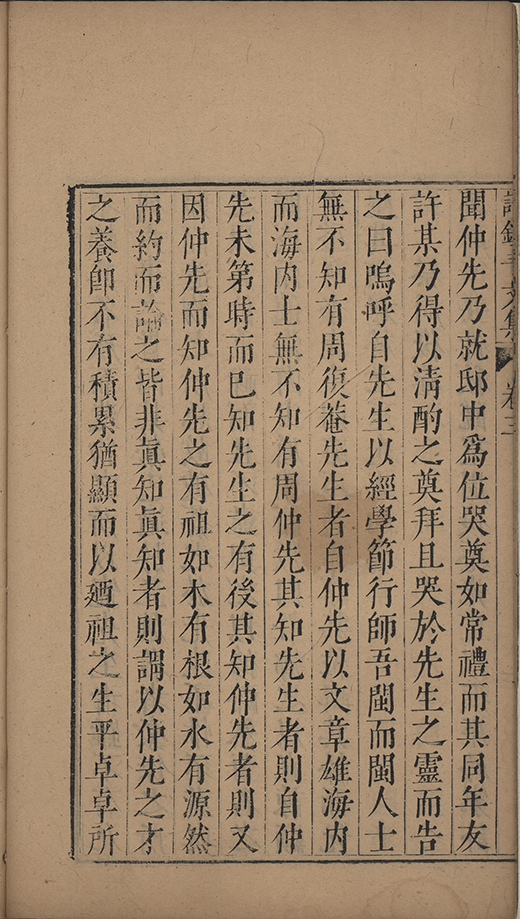 卷三
聞仲先乃就邸中為位哭奠如常禮而其同年友
許某乃得以清酌之奠拜且哭於先生之靈而告
之曰嗚呼自先生以經學節行師吾閩而閩人士
無不知有周復菴先生者自仲先以文章雄海內
而海內士無不知有周仲先其知先生者則自仲
先未第時而已知先生之有後其知仲先者則又
因仲先而知仲先之有祖如木有根如水有源然
而約而論之皆非眞知眞知者則謂以仲先之才
之養卽不有積累猶顯而以廼祖之生平卓卓所